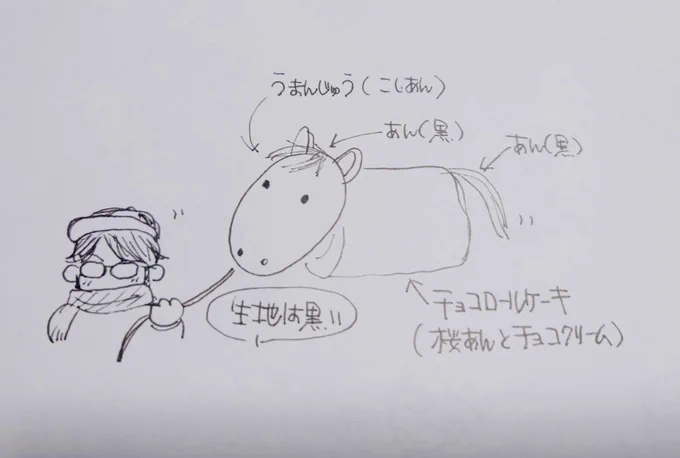 うまんじゅう(こしあん)
あん(黒)
あん(黒)
生地は黒!!
チョコロールケーキ
(桜あんとチョコクリーム)